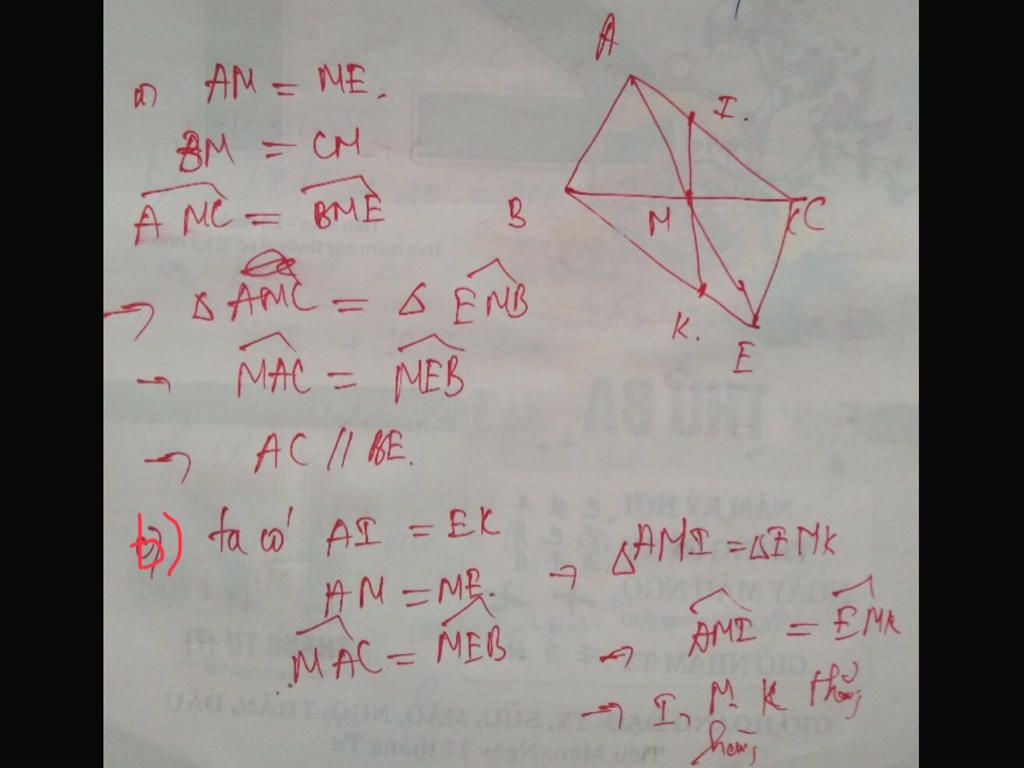 a) AM = ME.
BM = CM
AMC = BME
→ Δ AMC = Δ EMB
→ MAC = MEB
→ AC // BE.
b) ta có AI = EK
AM = ME.
MAC = MEB
→ ΔAMI = ΔEMK
→ AMI = EMK
→ I, M, K thẳng
hàng
A
I.
B
M
C
K.
E
THỨ BA
NĂM KỶ HỢI
GIỜ NHÂM TÝ
THÁNG TƯ (Đ)
GIỜ HOÀNG ĐẠO: TÝ, SỬU, MÃO, NGỌ, THÂN, DẬU
Tiểu Mãn: Ngày 17 tháng Tư